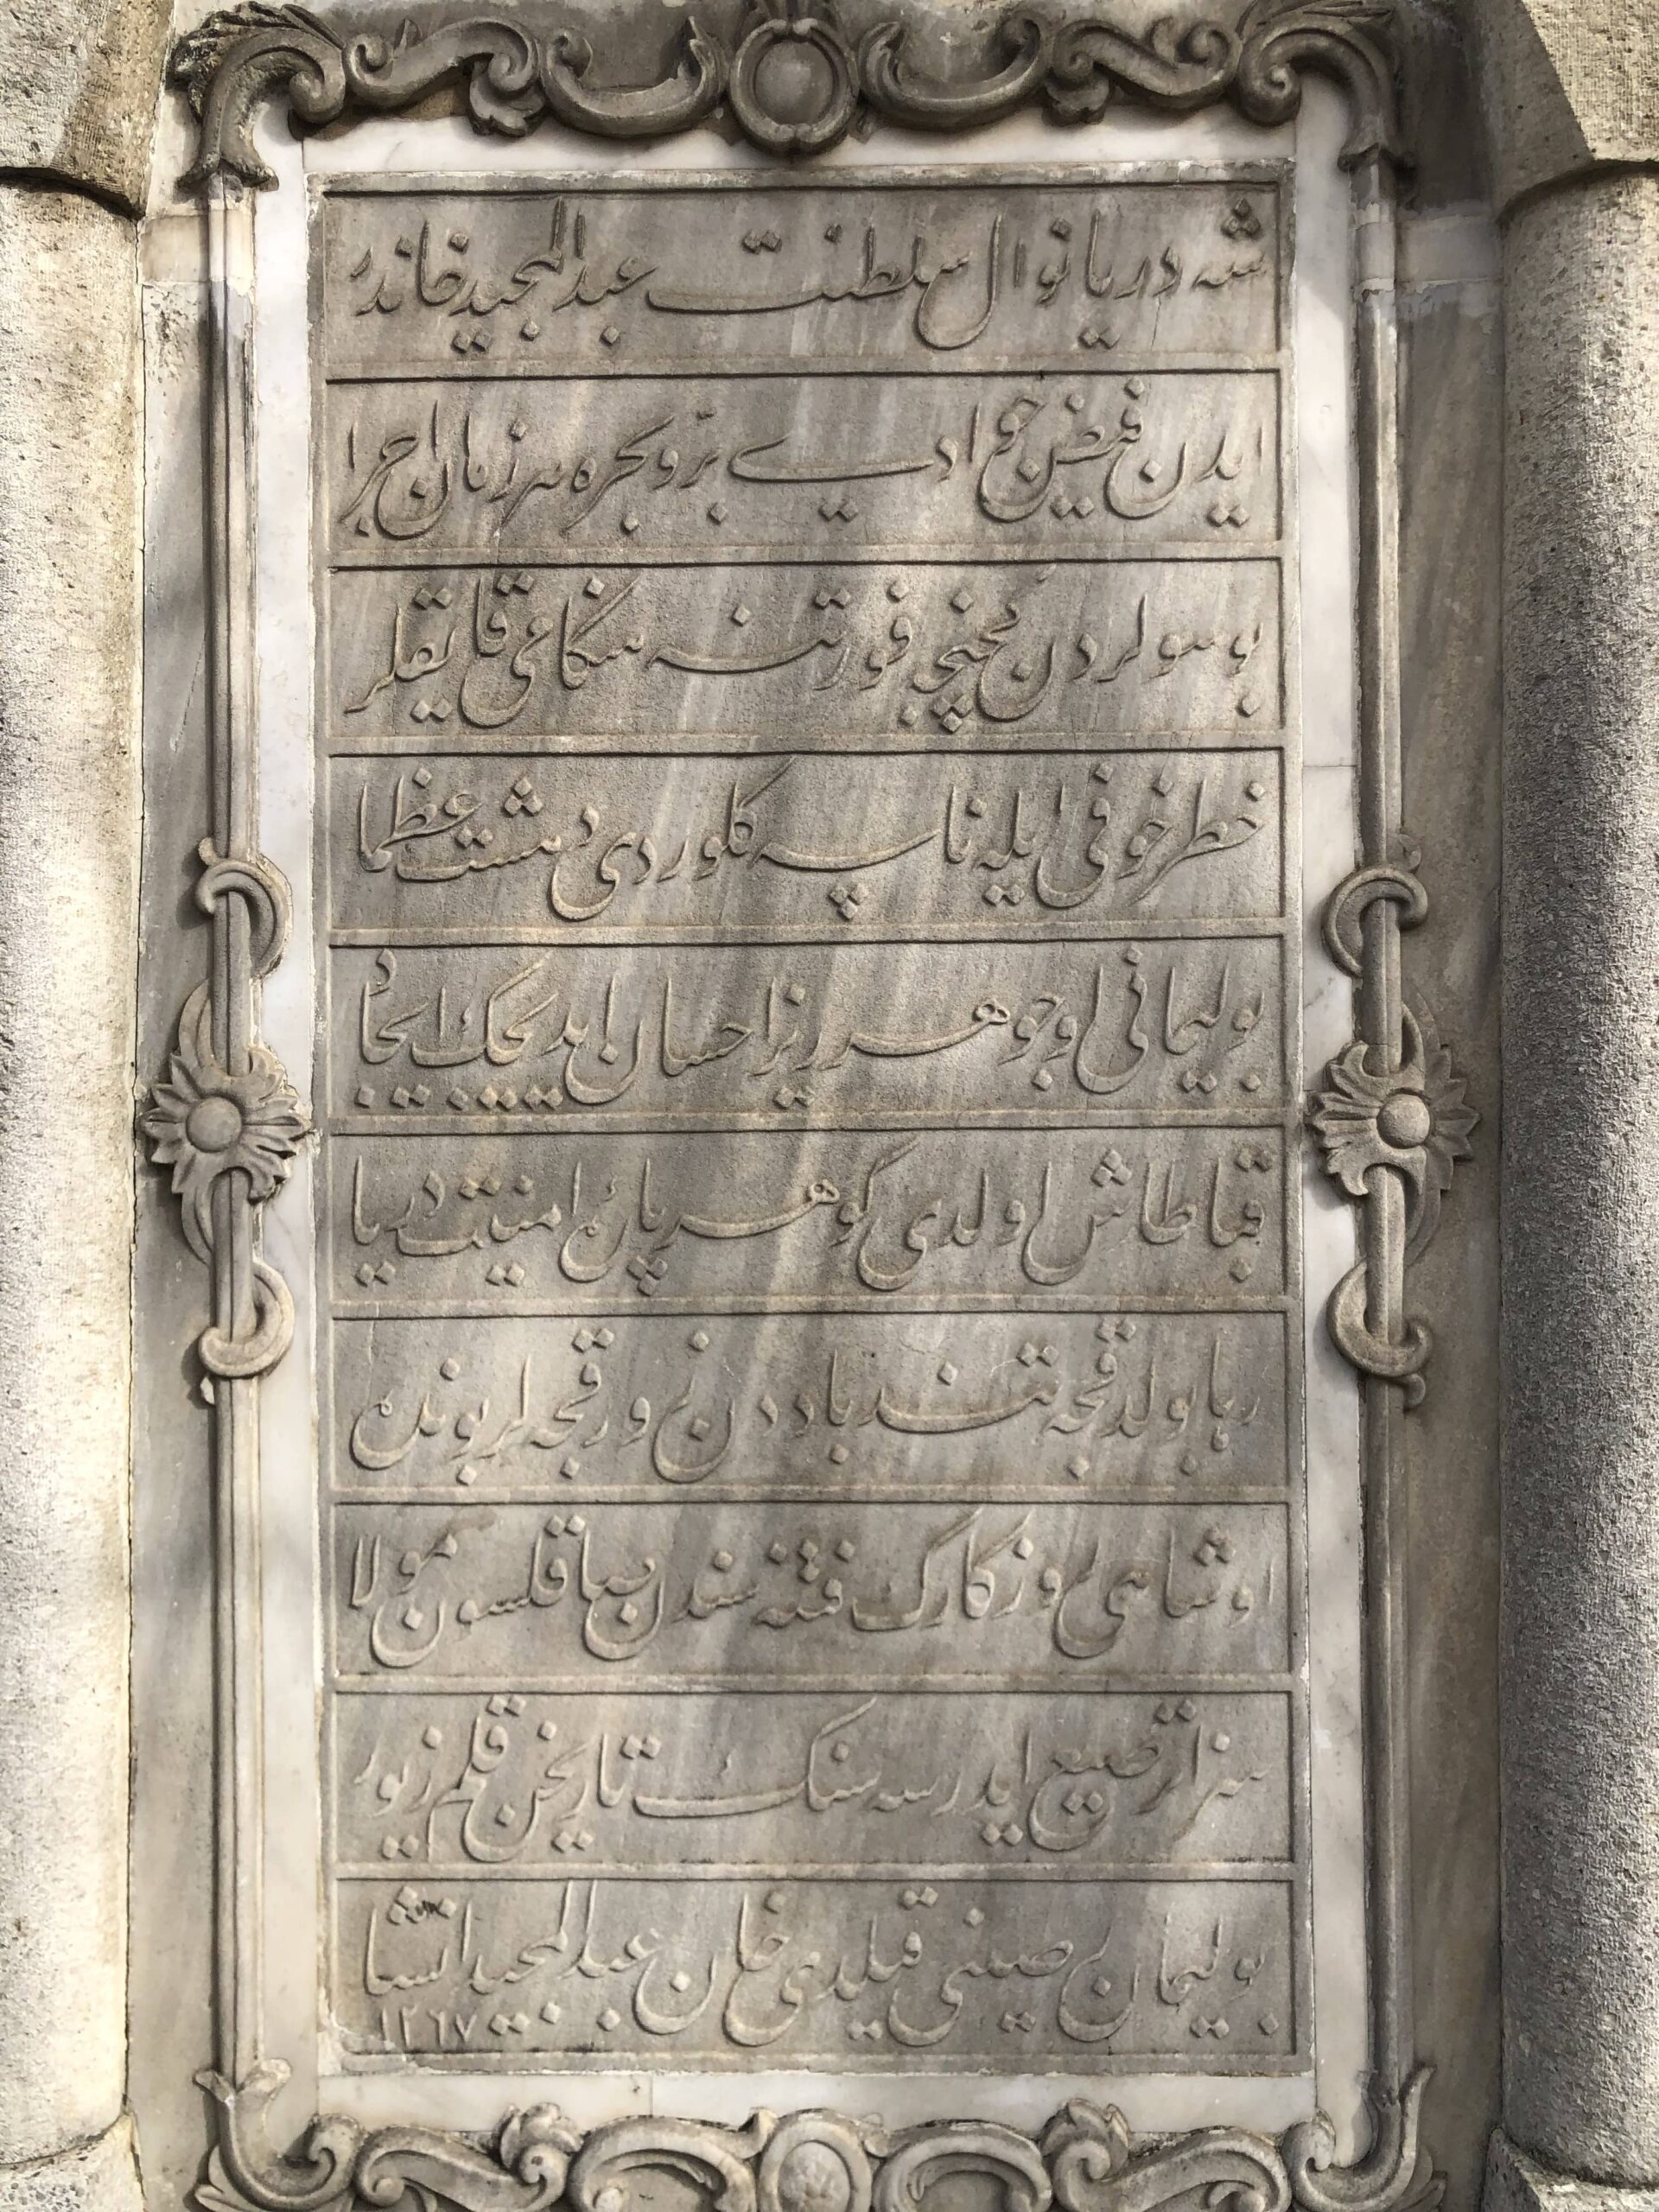 شه دریا نوال سلطنت عبدالمجید خاندر
ایدن فیض جوادی بر و بحره هر زمان اجرا
بو سولردن كچنجه فورتنه هنكامی قایقلر
خطر خوفی ایله ناپه كلوردی دهشت عظما
بو لیمانی او جوهرریز احسان ایدیجك ایجاد
قباطاش اولدی كوهرپاره امنیت دریا
رها بولدقجه تندباددن زورقچه لر بونده
او شاهی روزكارك فتنه سندن صاقلسون مولا
سزا ترصیع ایدرسه سنك تاریخن قلم زیور
بو لیمان رصینی قیلدی خان عبدالمجید انشا
١٢٦٧